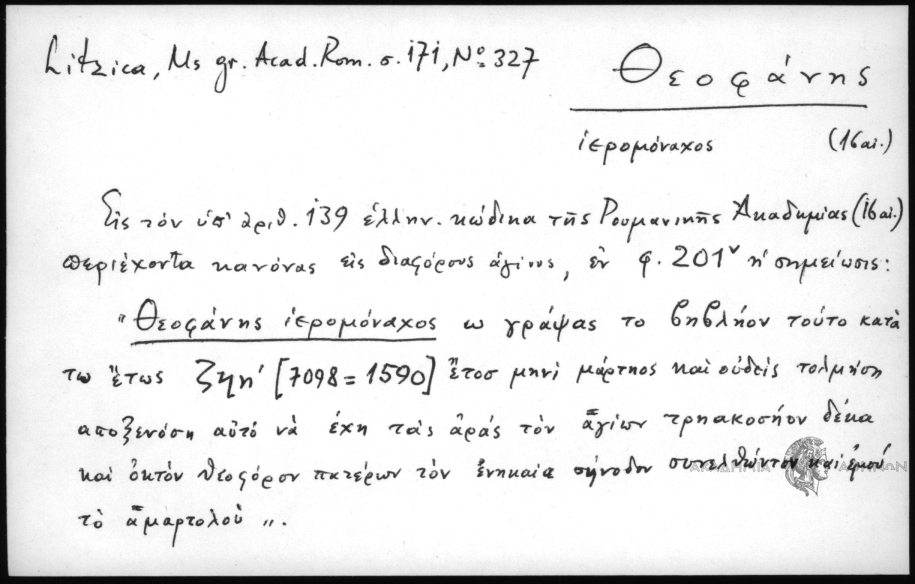 Litzica, Ms gr. Acad. Rom. σ. 171, Nº 327
Θεοφάνης
ἱερομόναχος (16 αἰ.)
Εἰς τὸν ὑπ' ἀριθ. 139 ἑλλην. κώδικα τῆς Ρουμανικῆς Ἀκαδημίας (16 αἰ.)
περιέχοντα κανόνας εἰς διαφόρους ἁγίους, ἐν φ. 201ᵛ ἡ σημείωσις:
"Θεοφάνης ἱερομόναχος ω γράψας το βηβλήον τούτο κατὰ
τω ἔτως ζηη' [7098 = 1590] ἔτοσ μηνὶ μάρτηος καὶ οὐδεὶς τολμήση
αποξενόση αὐτό νὰ έχη τὰς ἀράς τὸν ἁγίων τρηακοσήον δέκα
καὶ ὀκτόν θεοφόρον πατέρων τὸν ἐνηκαία σήνοδον συνελθώντον καὶ ἐμού
τὸ ἁμαρτολοῦ".
ΑΚΑΔΗΜΙΑ ΑΘΗΝΩΝ